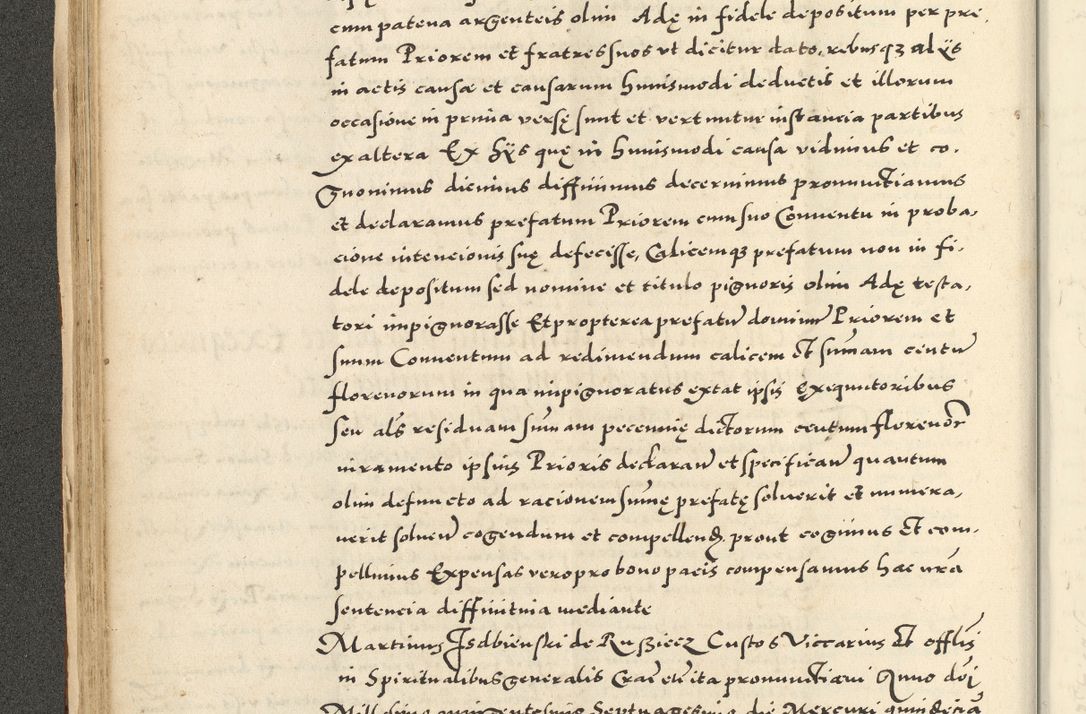 cum patena argenteis olim Adę in fidele depositum per pre,
fatum Priorem et fratres suos ut dicitur dato, rebusqз alijs
in actis causæ et causarum huiusmodi deductis et illorum
occasione in prima versę sunt et vertuntur instancia partibus
ex altera Ex hijs quę in huiusmodi causa vidimus et co,
gnouimus dicimus diffinimus decernimus pronunctiamus
et declaramus prefatum Priorem cum suo Conuentu in proba,
cione intencionis suę defecisse, Calicemqз prefatum non in fi,
dele depositum sed nomine et titulo pignoris olim Adę testa,
tori impignorasse Et propterea prefatū dominū Priorem et
suum Conuentum ad redimendum calicem et sum̄am centū
florenorum in qua impignoratus extat ipsis Exequutoribus
seu al̄s residuam sum̄am pecunię dictorum centum florenor̄
iuramento ipsius Prioris declaran̄ et specifican̄ quantum
olim defuncto ad racionem sum̄ę prefatę soluerit et numera,
uerit soluen̄ cogendum et compellend. prout cogimus et com,
pellimus Expensas vero pro bono pacis compensamus hac nr̄a
sentencia diffinitiua mediante
Martinus Isdbienski de Rusziecz Custos Viccarius et offl̄is
in Spiritualibus generalis Crac̄ etc̄ ita pronunctiaui Anno dn̄i
Millesimo quingentesimo Septuagesimo die Mercurij quindecima